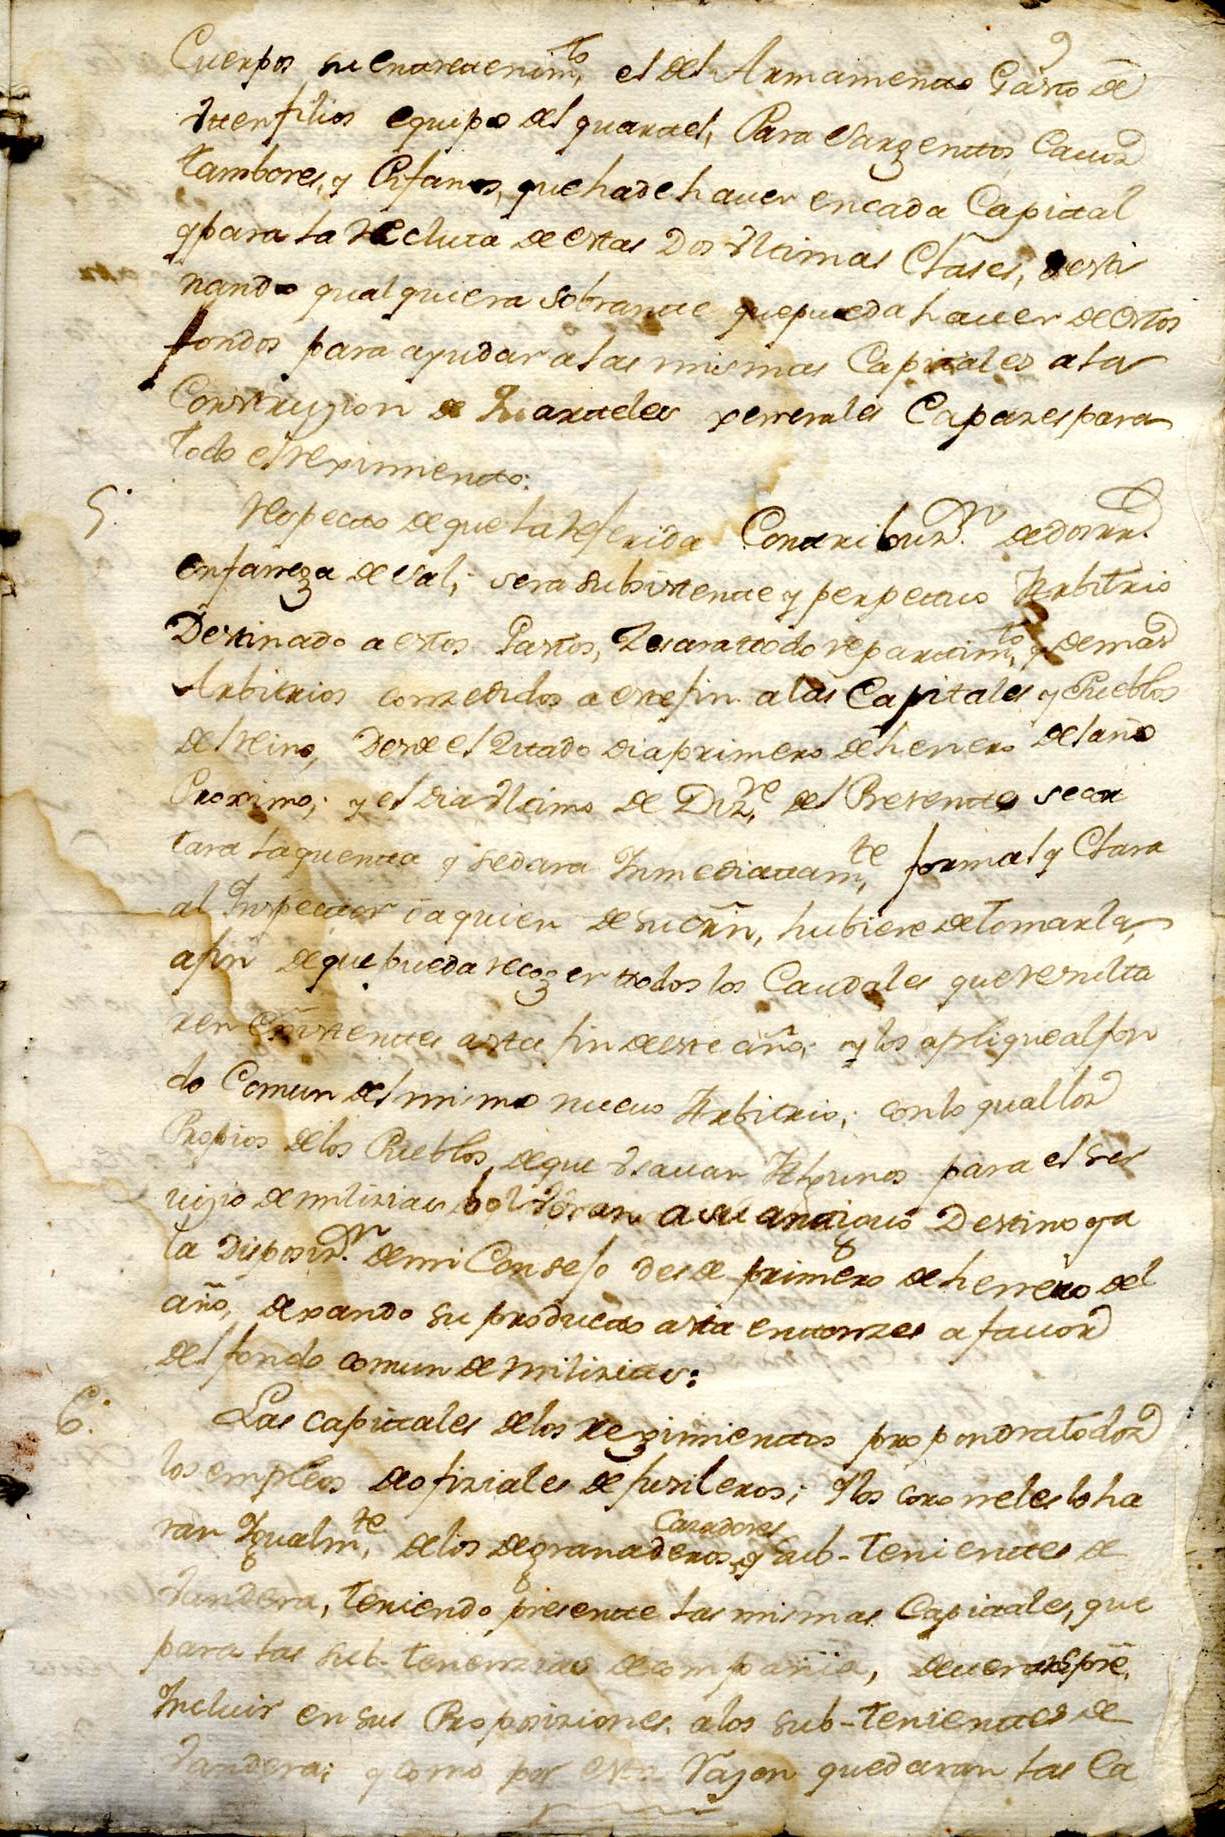 Cuerpos su entretenim.to, el del Armamento Gasto de
Utensilios equipo del quartel, Para Sargentos Cavos
tambores, y Pifanos, que ha de haver en cada Capital
y para la Recluta de estas Dos Ultimas Clases, desti
nando qualquiera sobrante que pueda haver de estos
fondos para ayudar a las mismas Capitales a la
Construzion de Quarteles xenerales Capazes para
todo el reximiento:
5. Respecto de que la referida Contribuz.n de dos rr.s
en fanega de sal; sera subsistente y perpetuo Arbitrio
Destinado a estos Gastos, Zesara todo repartim.to, y demas
Arbitrios conzedidos a este fin a las Capitales y Pueblos
del Reino, Desde el Zitado dia primero de henero del año
Proximo; y el dia Ultimo de Diz.re, del Presente se cor
tara la quenta y se dara Inmediatam.te, formal y Clara
al Inspector i a quien de su orñ, hubiere de tomarla,
a fin de que pueda recoger todos los Caudales que resulta
ren existentes asta fin de este año; y los aplique al fon
do Comun del mismo nuevo Arbitrio; con lo qual los
Propios de los Pueblos de que Usavan Algunos para el ser
vizio de milizias bolveran a su antiguo Destino y a
la Disposiz.n de mi Consejo desde primero de henero del
año, dexando su producto asta entonzes a favor
del fondo comun de milizias:
6. Las capitales de los regimientos propondra todos
los empleos de ofiziales de fusileros; Y los coroneles lo ha
ran Igualm.te, de los de granaderos, Cazadores y sub-tenientes de
Vandera, teniendo presente las mismas Capitales, que
para las sub-tenenzias de compañia, deveran spre.
Incluir en sus Proposiziones a los sub-tenientes de
Vandera; y como por esta Razon quedaran las Ca